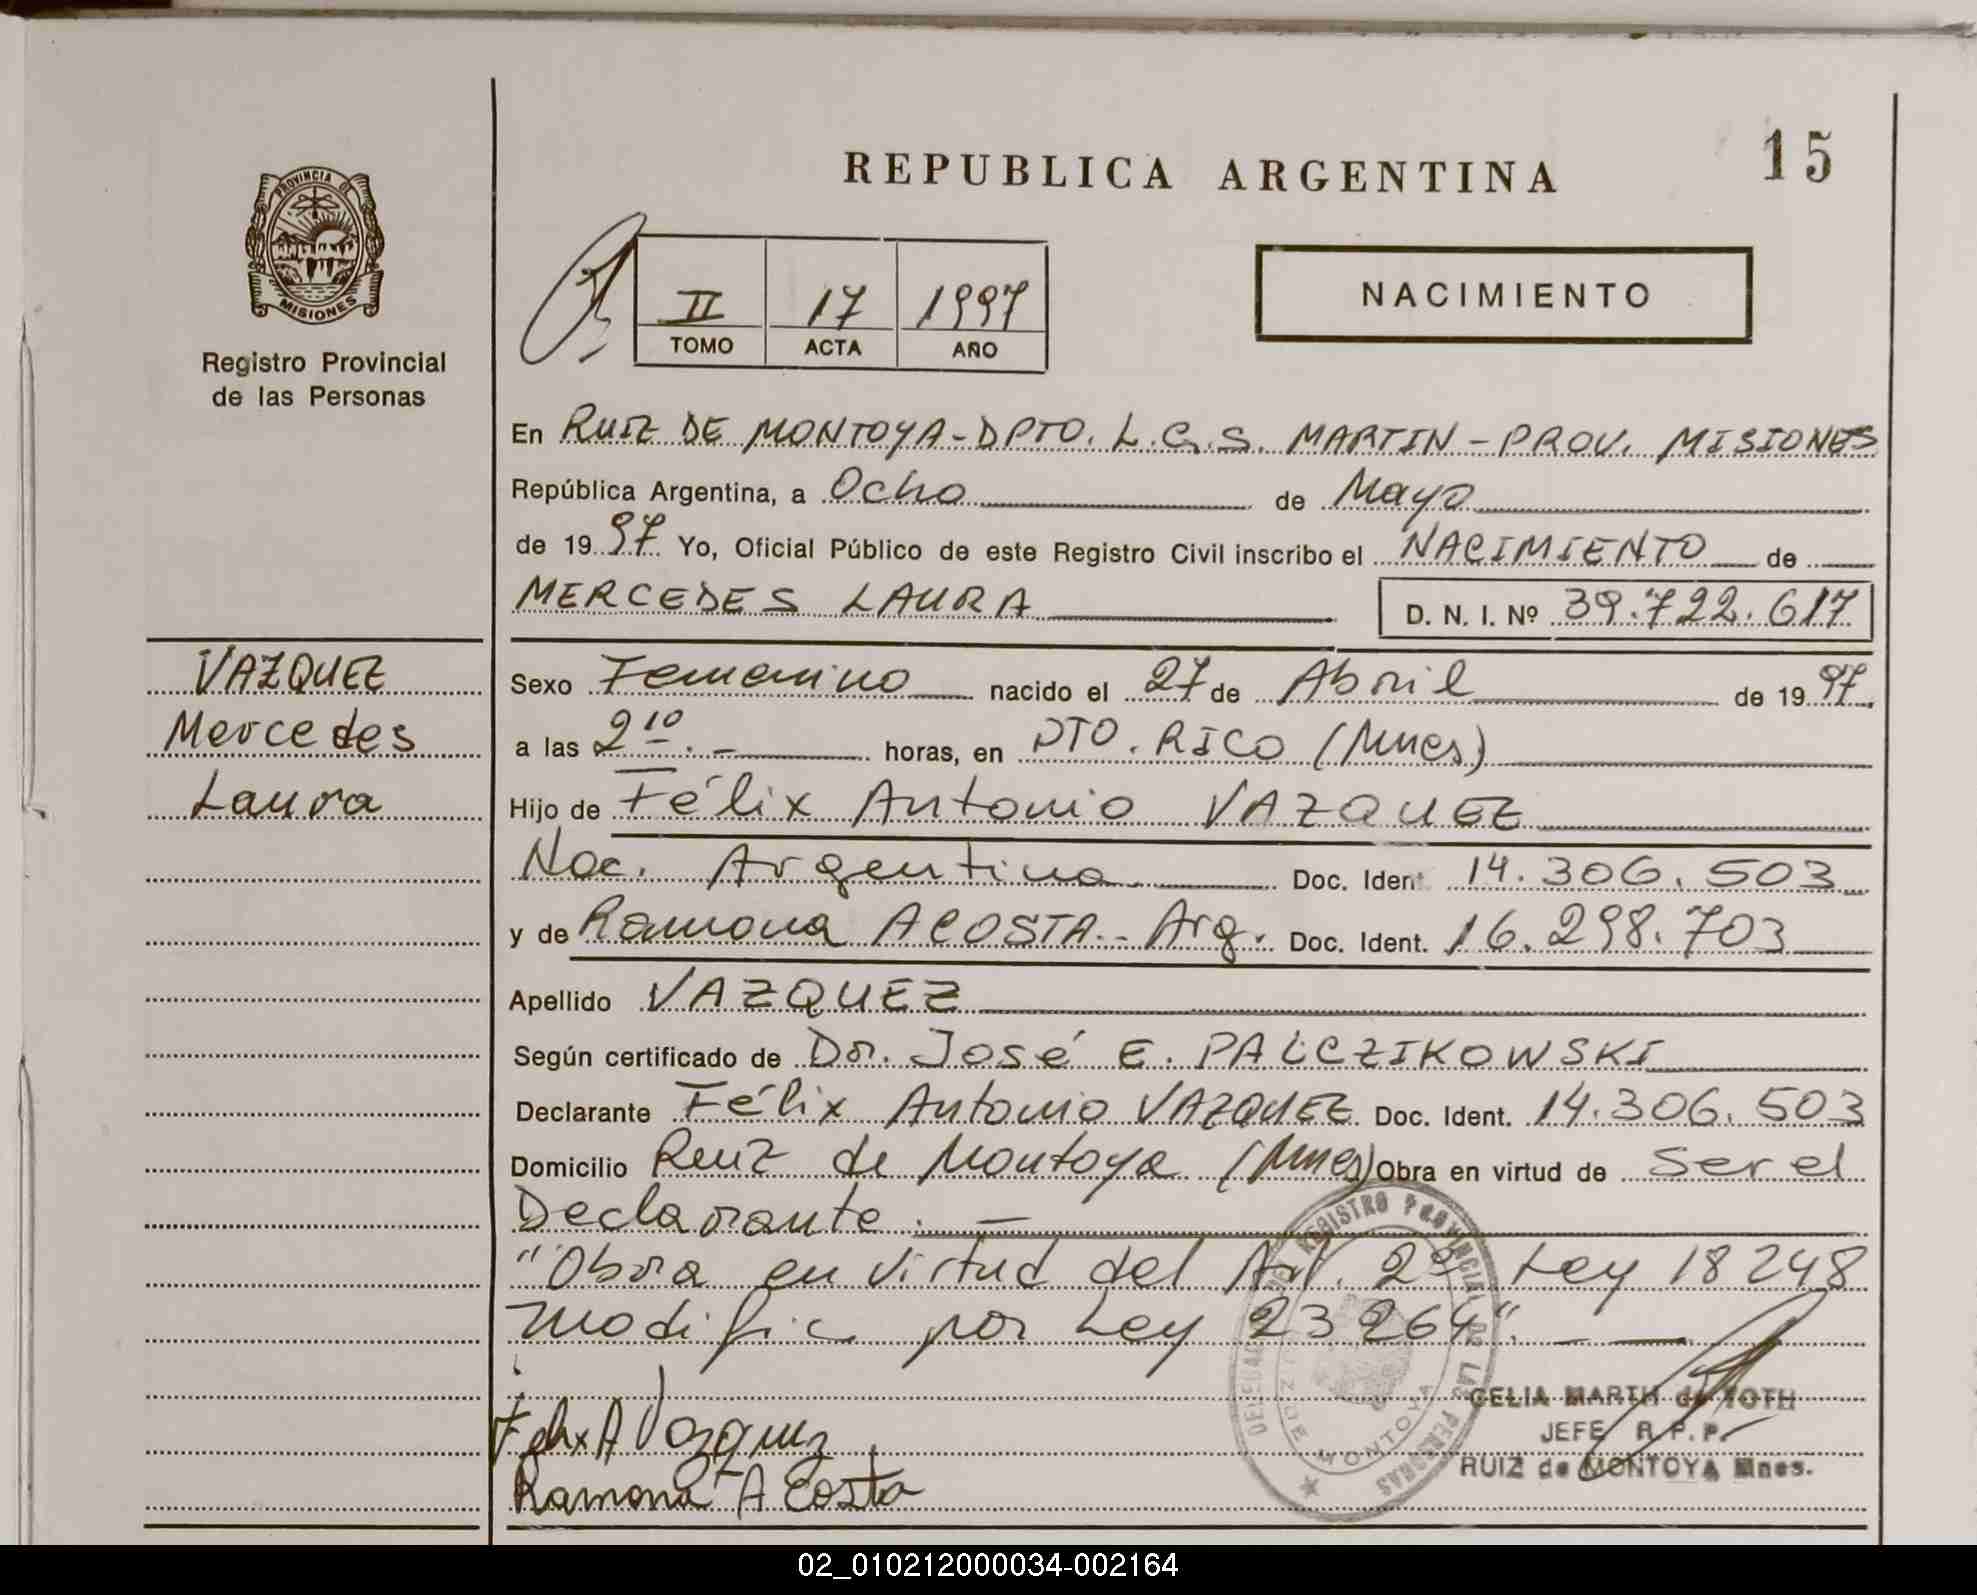 PROVINCIA DE
MISIONES
Registro Provincial
de las Personas
VAZQUEZ
Mercedes
Laura
REPUBLICA ARGENTINA
15
II 17 1997
TOMO ACTA AÑO
NACIMIENTO
En RUIZ DE MONTOYA-DPTO. L.G.S. MARTIN-PROV. MISIONES
República Argentina, a Ocho de Mayo
de 19 97 Yo, Oficial Público de este Registro Civil inscribo el NACIMIENTO de
MERCEDES LAURA D. N. I. Nº 39.722.617
Sexo Femenino nacido el 27 de Abril de 19 97.
a las 2 10. - horas, en PTO. RICO (Mnes)
Hijo de Félix Antonio VAZQUEZ
Nac. Argentina Doc. Ident 14.306.503
y de Ramona ACOSTA.- Arg. Doc. Ident. 16.298.703
Apellido VAZQUEZ
Según certificado de Dr. José E. PALCZIKOWSKI
Declarante Félix Antonio VAZQUEZ Doc. Ident. 14.306.503
Domicilio Ruiz de Montoya (Mnes) Obra en virtud de Ser el
Declarante. -
"Obra en virtud del Art. 2º Ley 18248
modific por Ley 23264". - -
Felix A Vazquez
Ramona A Costa
REGISTRO PROVINCIAL DE LAS PERSONAS
DE MONTOYA
CELIA MARTH de TOTH
JEFE R.P.P.
RUIZ de MONTOYA Mnes.
02_010212000034-002164